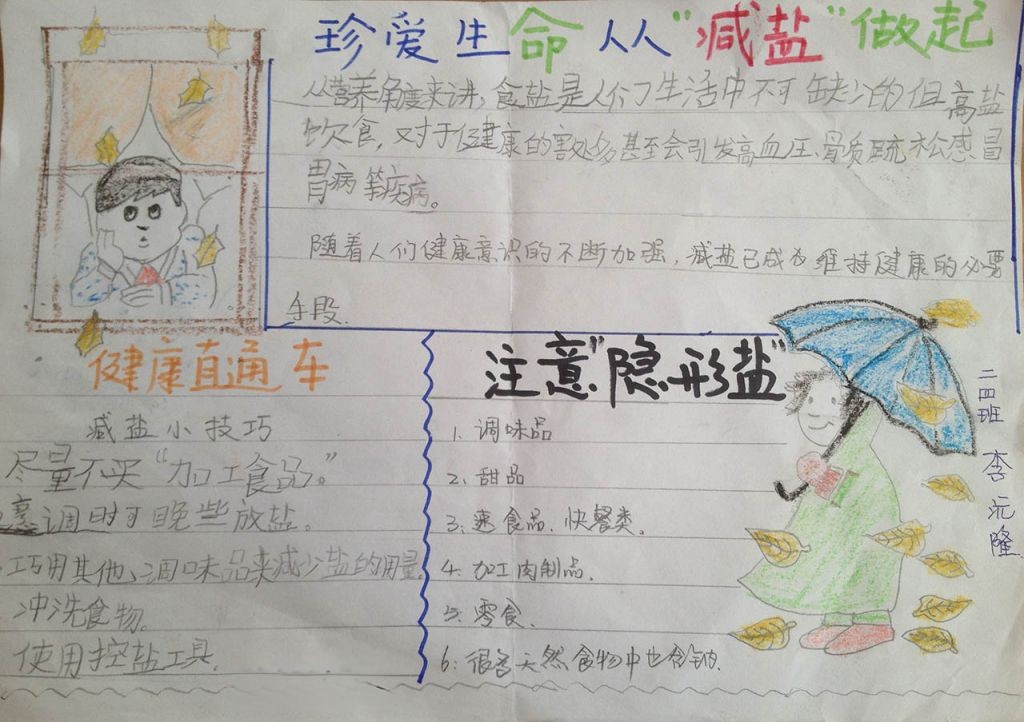 珍爱生命 从"减盐"做起
从营养角度来讲，食盐是人们生活中不可缺少的但高盐
饮食，对于健康的害处多甚至会引发高血压、骨质疏松感冒
胃病等疾病。
随着人们健康意识的不断加强，减盐已成为维持健康的必要
手段.
健康直通车
减盐小技巧
尽量不买"加工食品。"
烹调时晚些放盐。
巧用其他调味品来减少盐的用量
冲洗食物。
使用控盐工具.
注意"隐形盐"
1. 调味品
2. 甜品
3. 速食品. 快餐类.
4. 加工肉制品.
5. 零食.
6: 很多天然食物中也含钠.
二四班 李沅隆